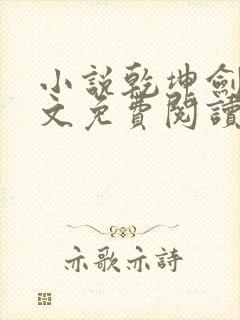 小說乾坤劍
文免費閱讀
亦歌亦詩